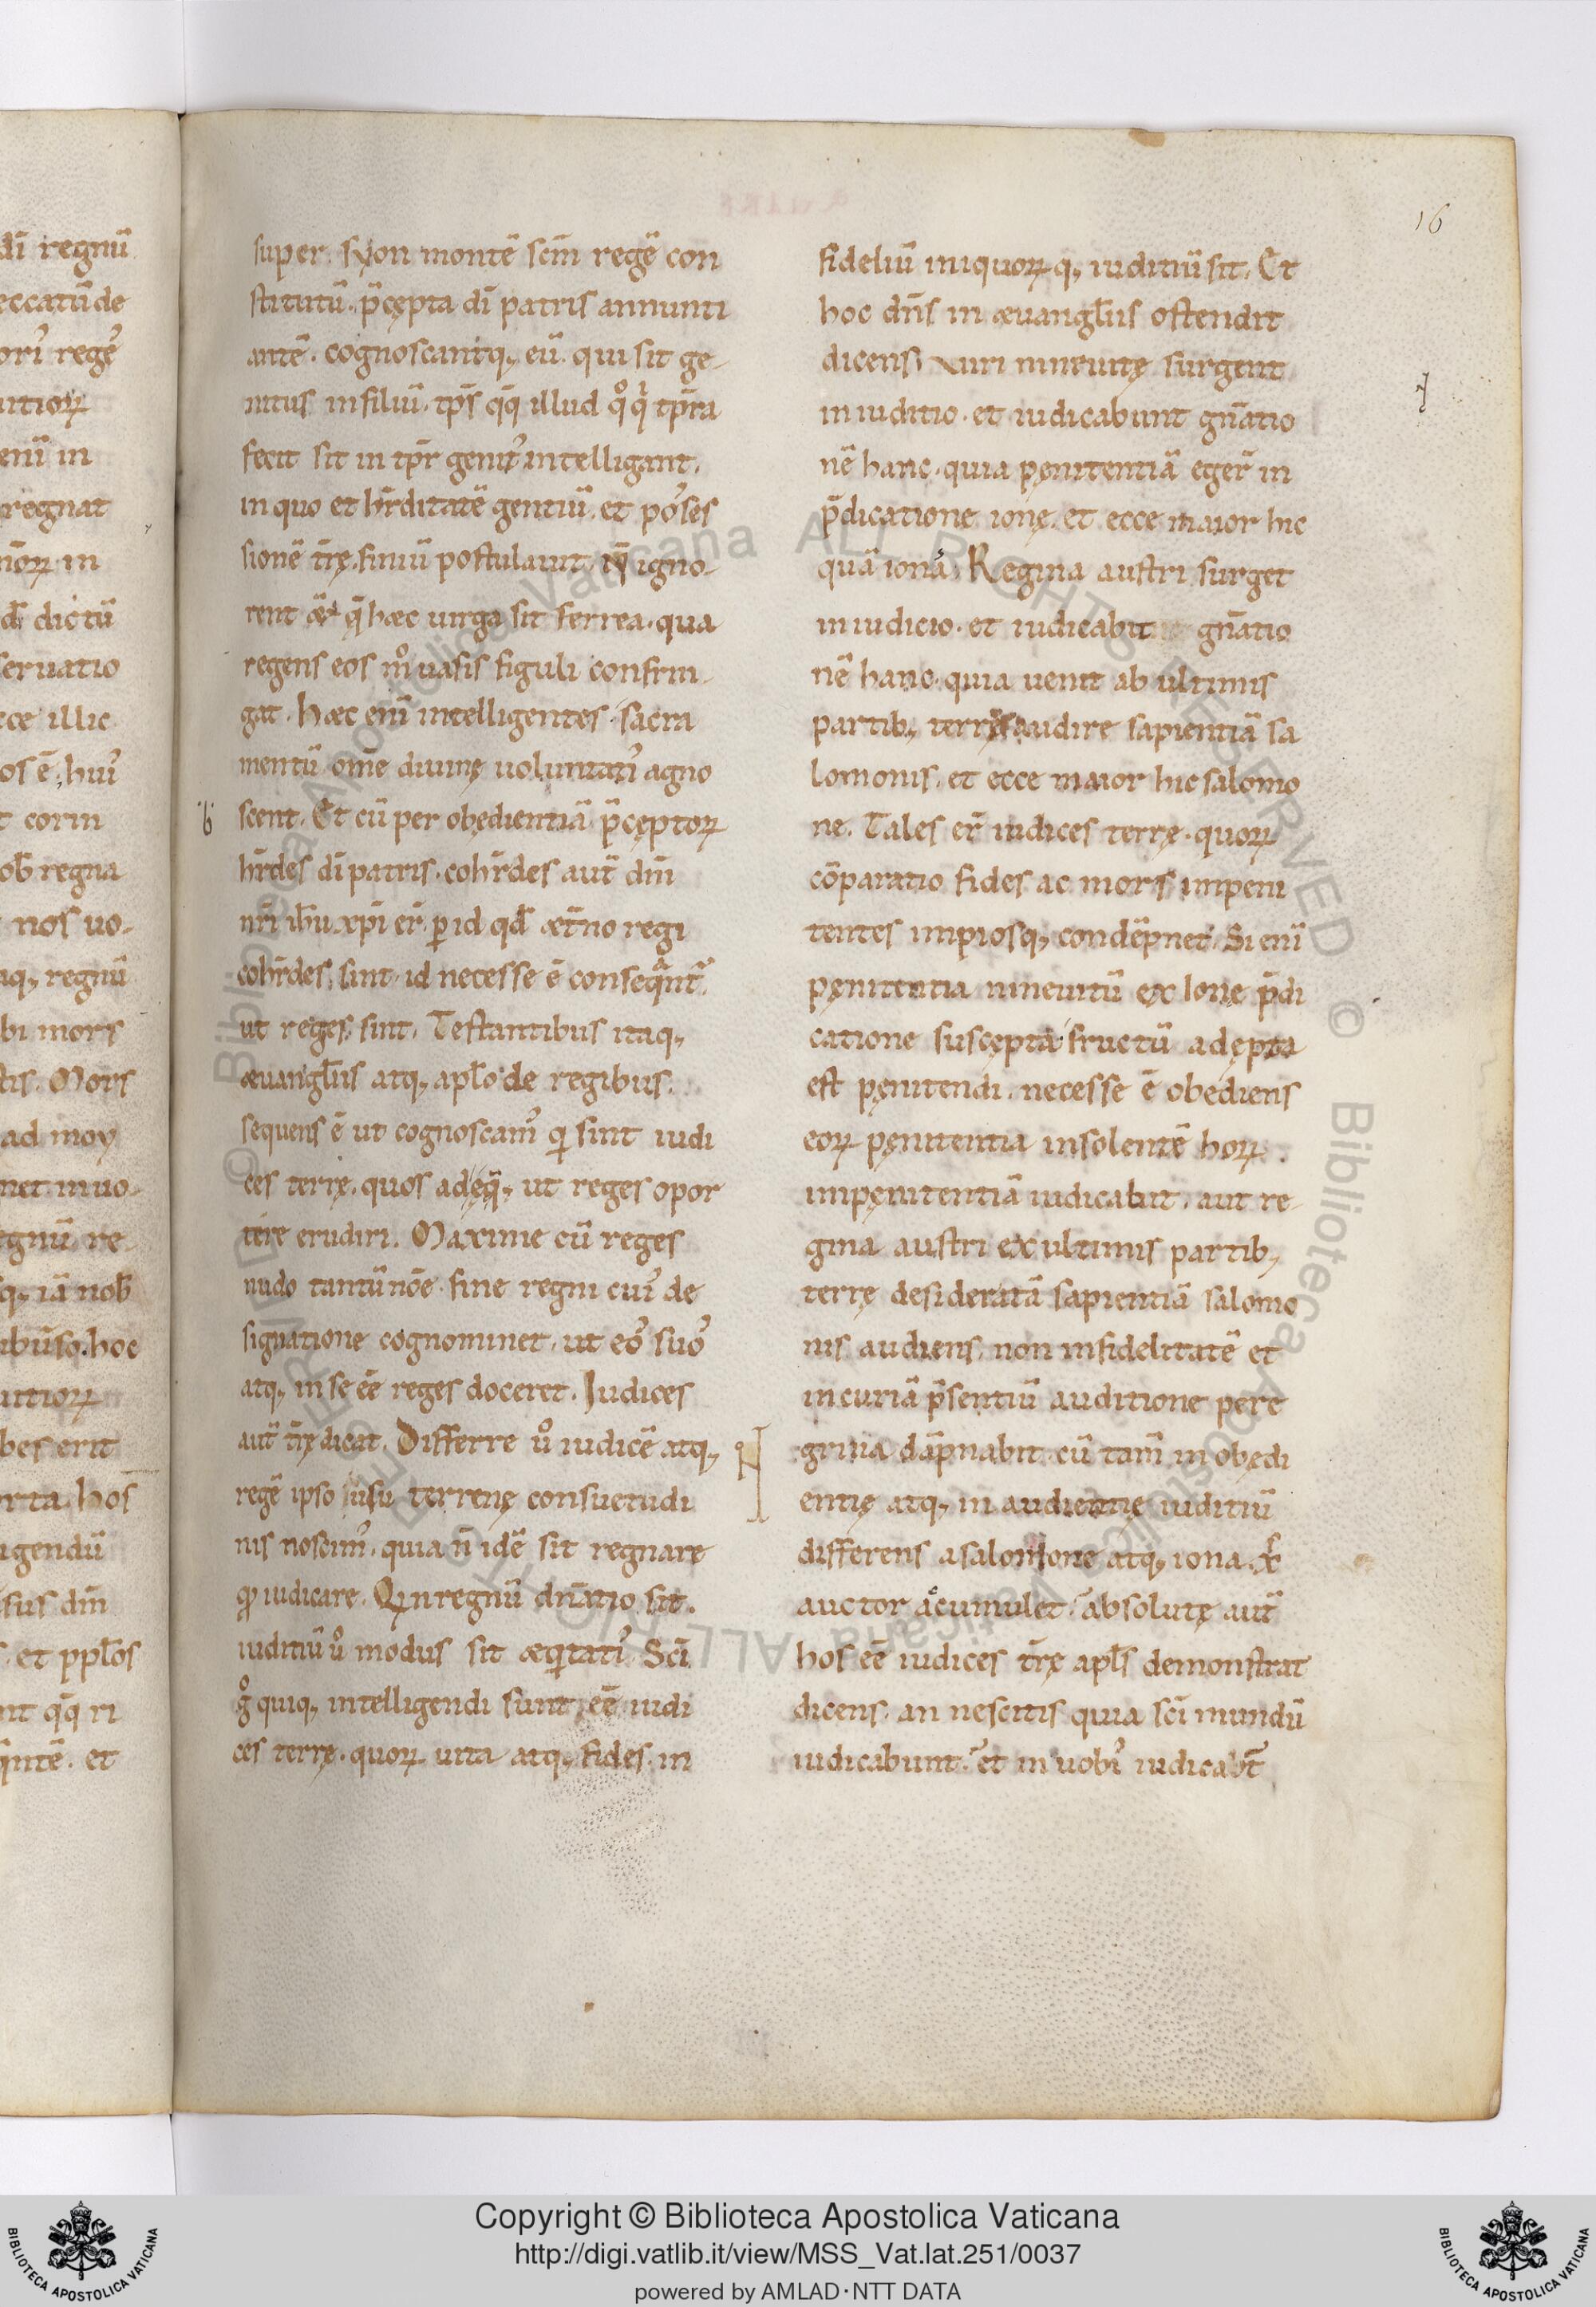 di regnũ
eccatũ de
ori᷒ regẽ
uitioꝝ
enĩ in
regnat
ñoꝝ in
dictũ
seruatio
cce illic
os ẽ, hui᷒
t corin
ob̄ regna
nos uo-
aq;, regnũ
bi mors
stis. Mors
ad moy
net in uo-
egnũ re-
q;, iã nob̄
ibus o. hoc
uitioꝝ
bes erit
orta. hos
igendũ
sus dñi
et ppl̄os
nt qq̃ ri
q̃ntẽ. et
super. syon montẽ sc̄m regẽ con
stitutũ. p̄cępta dī patris annunti
antẽ. cognoscantq; eũ. qui sit ge-
nitus in filiũ. tp̄s qq̃ illud qͦ qi tp̄ra
fecit sit in tp̄r genit᷒ intelligant.
in quo et hr̄ditatẽ gentiũ. et pos᷒ses
sionẽ tr̄ę. finiũ postulauit. Nẽ igno-
rent æt q̃ hæc uirga sit ferrea. qua
regens eos mͦ uasis figuli confrin-
gat. Hæc enĩ intelligentes. sacra
mentũ om̄e diuinę uoluntati᷒ agno
scent. Et cũ per obędientiã p̄cęptoꝝ
hr̄des dī patris. cohr̄des aut̃ dñi
nr̄i ih̄u xp̄i er̄. ꝑ id qd̃ æt̄no regi
cohr̄des sint. id necesse ẽ conseqᵃnt᷒.
ut reges sint. Testantibus itaq;
æuangl̄iis atq; apl̄o de regibus.
sequens ẽ ut cognoscam᷒ qͥ sint iudi
ces terrę. quos adęq̃; ut reges opor
teře erudiri. Maxime cũ reges
nudo tantũ nõe. sine regni cui᷒ de
signatione cognominet. ut eo᷒ suo᷒
atq; in se ēē reges doceret. Iudices
aut̃ tr̄ę dicat. Differre uͦ iudicẽ atq;
regẽ ipso usu terrenę consuetudi
nis noscim᷒. quia ñ idẽ sit regnare
qͥ iudicare. Qͥn regnũ dñatio sit.
iuditiũ uͦ modus sit æqͥtati᷒. Sc̄i
gͦ quiq; intelligendi sunt ēē iudi
ces terrę. quoꝝ uita atq; fides. in
16
fideliũ iniquoꝝq; iuditiũ sit. Et
hoc dñs in æuangl̄iis ostendit
dicens. Viri nineuitę surgent
in iuditio. et iudicabunt gñatio
nẽ hanc. quia pęnitentiã eger̄ in
p̄dicatione ionę. et ecce maior hic
quã iona. Regina austri surget
in iudicio. et iudicabit gñatio
nẽ hanc. quia uenit ab ultimis
partib; terrę audire sapientiã sa
lomonis. et ecce maior hic salomo
ne. Tales er̄ iudices terrę. quoꝝ
cõparatio fides ac mors impeni
tentes impiosq; condẽpnet. Si enĩ
pęnitentia nineuitũ ex Ionę p̄di
catione suscępta fructũ adępta
est pęnitendi. necesse ẽ obediens
eoꝝ pęnitentia insolentẽ hoꝝ.
impęnitentiã iudicabit. aut re-
gina austri ex ultimis partib;
terrę desideratã sapientiã salomo
nis audiens. non infidelitatẽ et
incuriã p̄sentiũ auditione pere
grina dãpnabit. cũ tam̃ in obędi
entię atq; in audientię iuditiũ
differens a salomone atq; iona.
auctor acumulet. absolutę aut̃
hos ēē iudices tr̄ę apl̄s demonstrat
dicens. an nescitis quia sc̄i mundũ
iudicabunt. et in uobi᷒ iudicabt̄
b
Copyright © Biblioteca Apostolica Vaticana
http://digi.vatlib.it/view/MSS_Vat.lat.251/0037
powered by AMLAD·NTT DATA
BIBLIOTECA APOSTOLICA VATICANA
BIBLIOTECA APOSTOLICA VATICANA